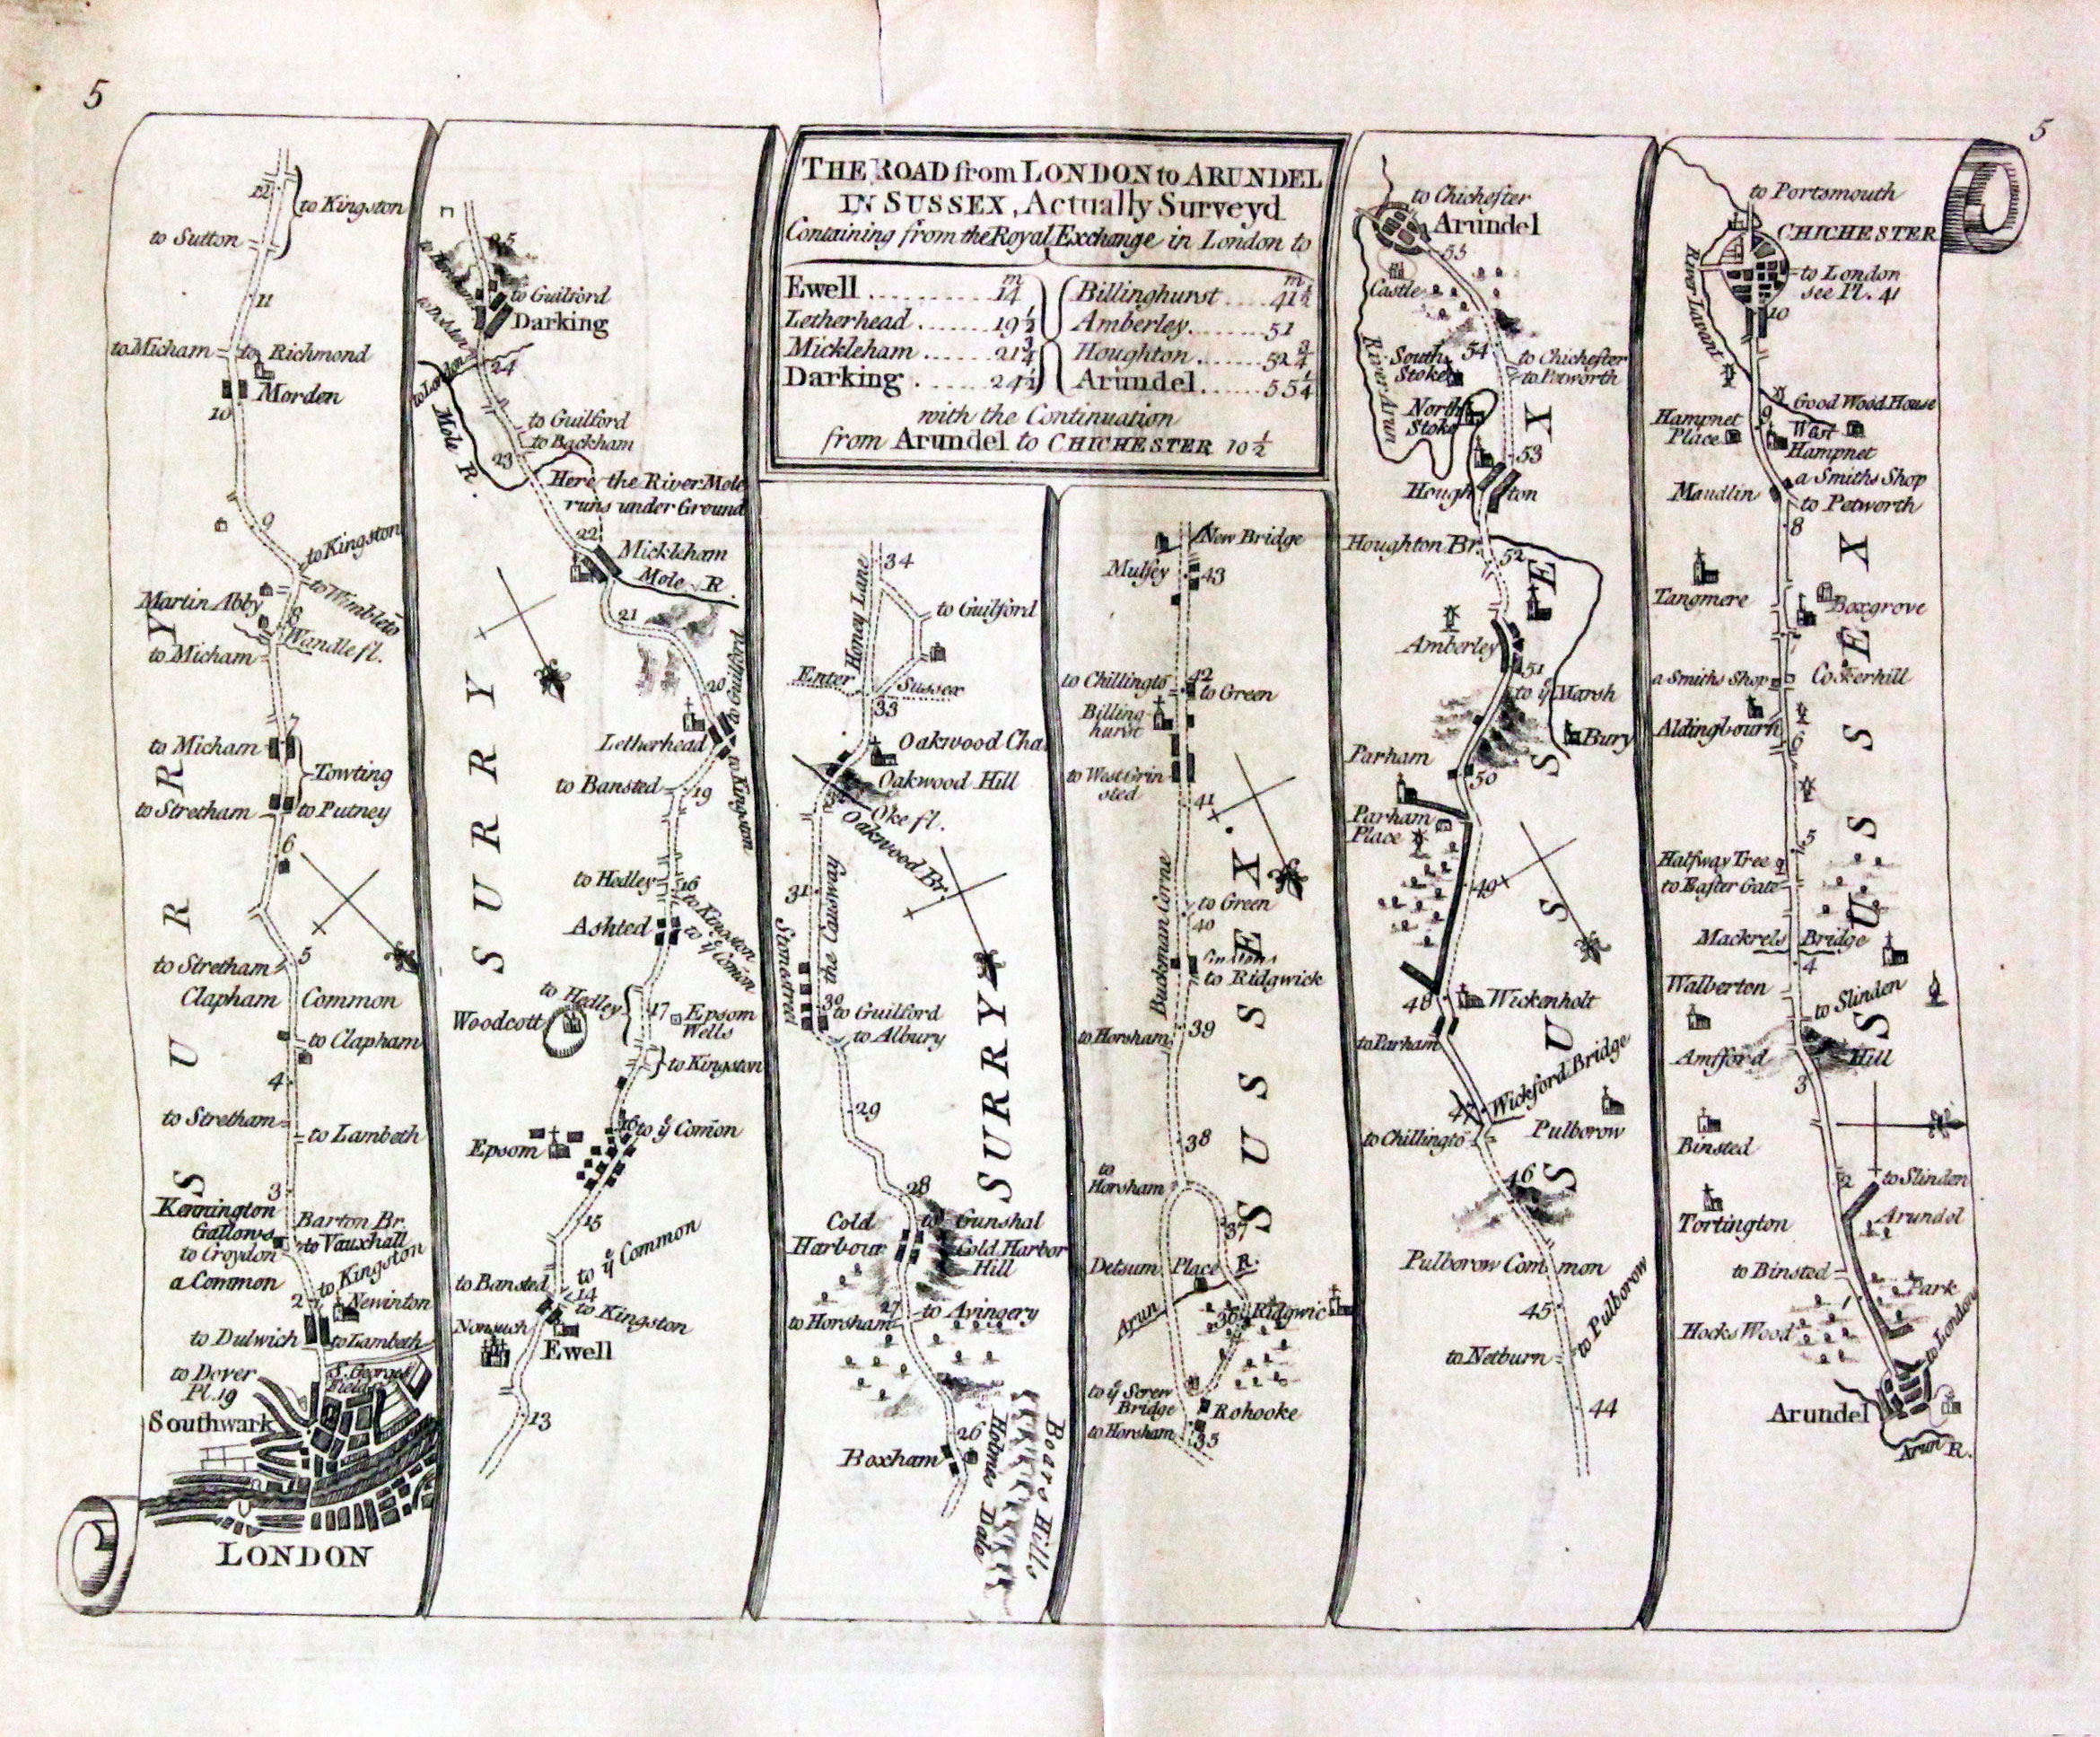 5
5
THE ROAD from LONDON to ARUNDEL
IN SUSSEX, Actually Survey'd
Containing from the Royal Exchange in London to
m
Ewell .......... 14
Letherhead ...... 19 1/2
Mickleham ...... 21 3/4
Darking ....... 24 1/2
m
Billinghurst .... 41 1/2
Amberley ....... 51
Houghton ..... 52 3/4
Arundel ...... 55 1/4
with the Continuation
from Arundel to CHICHESTER 10 1/2
12
to Kingston
to Sutton
11
to Micham
to Richmond
Morden
10
9
to Kingston
to Wimbleto
Martin Abby
8
Wandle fl.
to Micham
7
to Micham
Towting
to Stretham
to Putney
6
5
to Stretham
Clapham Common
to Clapham
4
to Stretham
to Lambeth
3
Kennington
Gallows
Barton Br.
to Vauxhall
to Croydon
to Kingston
a Common
2
Newinton
to Dulwich
to Lambeth
to Dover
Pl. 19
S. Georges
Fields
Southwark
LONDON
SURRY
25
to Guilford
Darking
24
to London
Mole R.
to Guilford
to Backham
23
Here the River Mole
runs under Ground
22
Mickleham
Mole R.
21
20
to Guilford
Letherhead
to Kingston
to Bansted
19
to Hedley
16
to Kingston
Ashted
to ye Comon
to Hedley
17
Epsom
Wells
Woodcott
to Kingston
16
to ye Comon
Epsom
15
to ye Common
to Bansted
14
to Kingston
Nonsuch
Ewell
13
SURRY
34
Honey Lane
to Guilford
Enter Sussex
33
Oakwood Cha
Oakwood Hill
Oke fl.
Oakwood Br.
31
the Causway
Stonestreet
30
to Guilford
to Albury
29
28
Cold
Harbour
to Gunshal
Cold Harbor
Hill
27
to Horsham
to Avingery
26
Boxham
Holmes Dale
Boars Hills
SURRY
New Bridge
Mulsey
43
42
to Chillingto
to Green
Billing
hurst
to West Grin
sted
41
Buckman Corne
to Green
40
to Ridgwick
39
to Horsham
38
to
Horsham
37
Detsum Place
Arun R.
36
Ridgwic
to ye Screw
Bridge
Rohooke
to Horsham
35
SUSSEX.
to Chichester
Arundel
55
Castle
River Arun
South
Stoke
54
to Chichester
to Petworth
North
Stoke
53
Houghton
Houghton Br.
52
Amberley
51
to ye Marsh
Bury
Parham
50
Parham
Place
49
48
Wickenholt
to Parham
Wickford Bridge
47
to Chillingto
Pulborow
46
Pulborow Common
45
to Pulborow
to Netburn
44
SUSSEX
to Portsmouth
CHICHESTER
River Lavant
to London
see Pl. 41
10
Good Wood House
Hampnet
Place
9
West
Hampnet
a Smiths Shop
Maudlin
to Petworth
8
Tangmere
Boxgrove
7
a Smiths Shop
Cokerhill
Aldingbourn
6
5
Halfway Tree
to Easter Gate
Mackrels Bridge
4
Walberton
to Slinden
Amfford Hill
3
Binsted
2
to Slinden
Tortington
Arundel
Park
to Binsted
1
Hocks Wood
to London
Arundel
Arun R.
SUSSEX